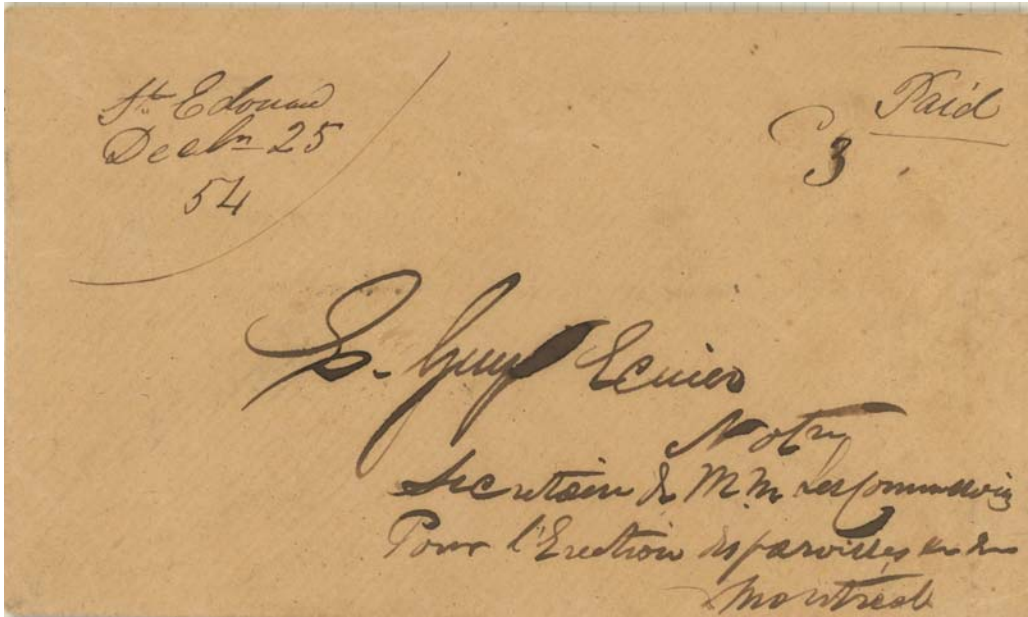 St. Edouard
Decbr 25
54
Paid
3
Guy Ecuier
Notre
Secretaire de MM Les Commissaires
Pour l'Erection des paroisses
Montréal